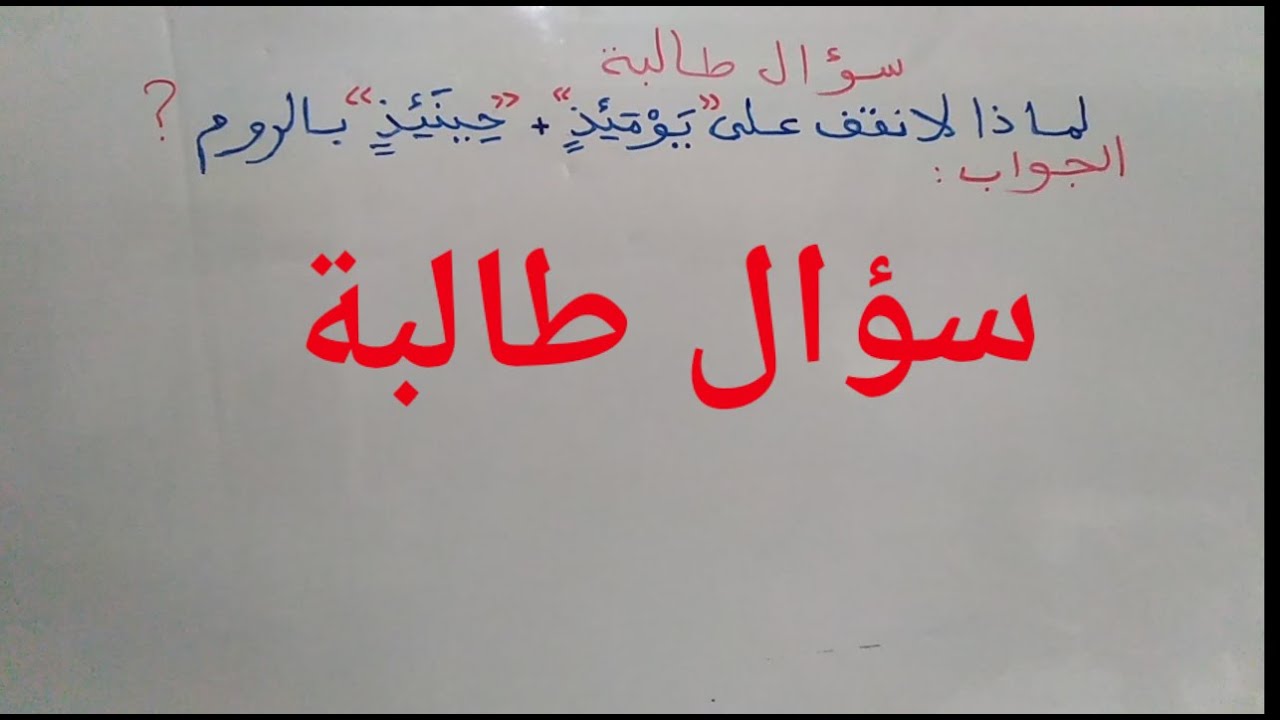 سؤال طالبة
لماذا لا نقف على "يَوْمَئِذٍ" + "حِينَئِذٍ" بالروم ؟
الجواب :
سؤال طالبة